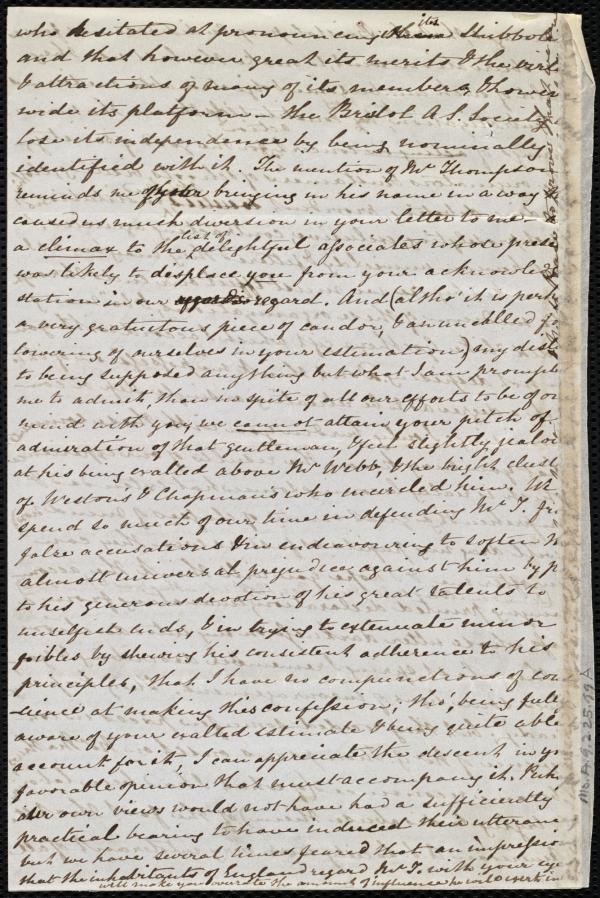 who hesitated at pronouncing its Shibbole
and that however great its merits & the virt
& attractions of many of its members, & howev
wide its platform – the Bristol A.S. Society
lose its independence by being nominally
identified with it. The mention of Mr Thompson
reminds me of your bringing in his name in a way
caused us much diversion in your letter to me –
a climax to the list of delightful associates whose prese
was likely to displace you from your acknowle
station in our regard. And (altho' it is perh
a very gratuitous piece of candor, & an uncalled f
lowering of ourselves in your estimation) my disl
to being supposed anything but what I am prompts
me to admit than in spite of all our efforts to be of on
mind with you, we cannot attain your pitch of
admiration of that gentleman, & feel slightly jealou
at his being exalted above Mr Webb, & the bright clust
of Westons & Chapmans who encircled him. We
spend so much of our time in defending Mr T. fr
false accusations & in endeavouring to soften
almost universal prejudice against him by p
to his generous devotion of his great talents to
unselfish ends, & in trying to extenuate minor
foibles by shewing his consistent adherence to his
principles, that I have no compunctions of con
-science at making this confession; tho' being full
aware of your exalted estimate & being quite able
account for it, I can appreciate the descent in yo
favorable opinion that must accompany it. Perh
our own views would not have had a sufficiently
practical bearing to have induced their utteran
but we have several times feared that an impression
that the inhabitants of England regard Mr T. with your eye
will make you overrate the amount of influence he will exert in
Ms. A.9.2.25.79A